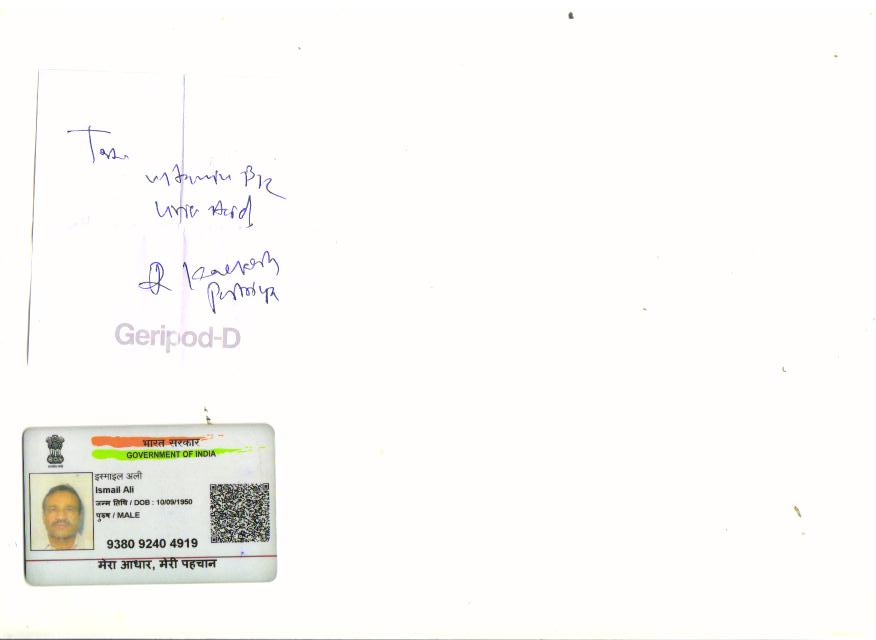 Vitamin B12
Uric Acid
Dr
Geripod-D
भारत सरकार
GOVERNMENT OF INDIA
इस्माइल अली
Ismail Ali
जन्म तिथि / DOB : 10/09/1950
पुरुष / MALE
9380 9240 4919
मेरा आधार, मेरी पहचान